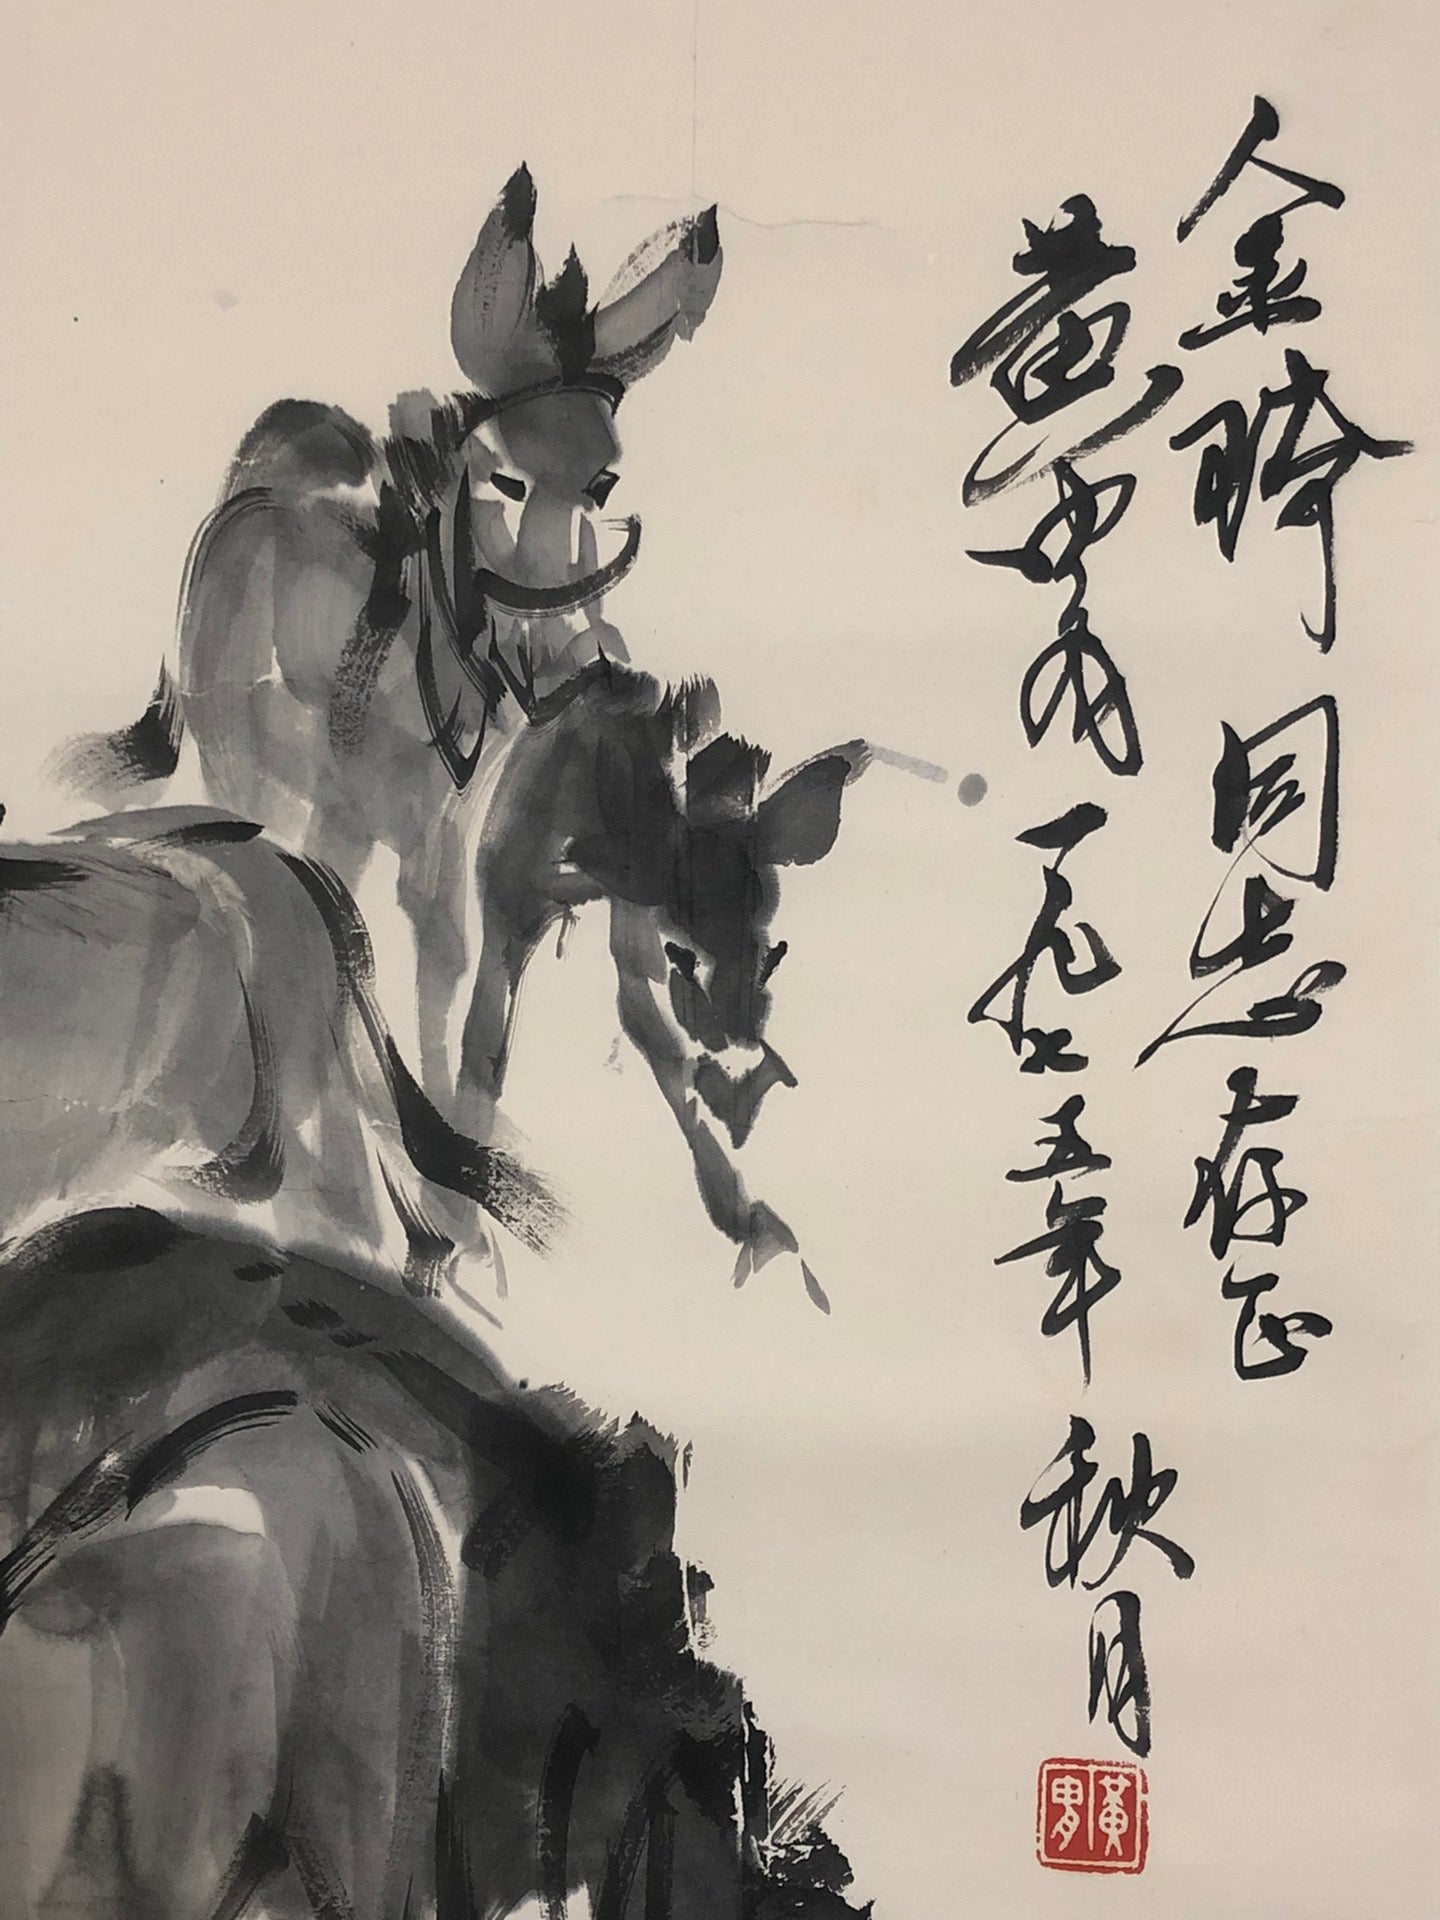 金琦同志存正
黄胄一九七五年秋月
黃胄